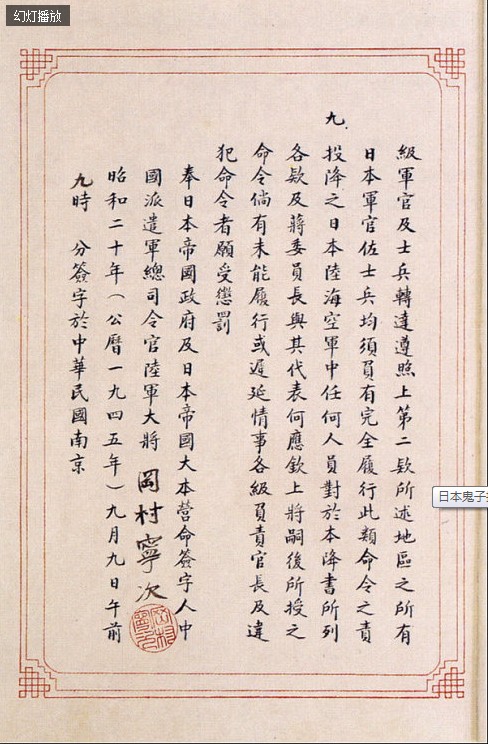 幻灯播放
級軍官及士兵轉達遵照上第二欵所述地區之所有
日本軍官佐士兵均須負有完全履行此類命令之責
九、投降之日本陸海空軍中任何人員對於本降書所列
各欵及蔣委員長與其代表何應欽上將嗣後所授之
命令倘有未能履行或遲延情事各級負責官長及違
犯命令者願受懲罰
奉日本帝國政府及日本帝國大本營命簽字人中
國派遣軍總司令官陸軍大將 岡村寧次
昭和二十年(公曆一九四五年)九月九日午前
九時 分簽字於中華民國南京
日本鬼子